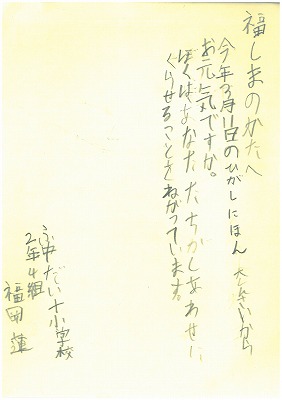 福しまのかたへ
今年3月11日のひがしにほん大しんさいから
お元気ですか。
ぼくはあなたたちがしあわせに
くらせることをねがっています。
ふ中だい十小学校
2年4組
福田 蓮